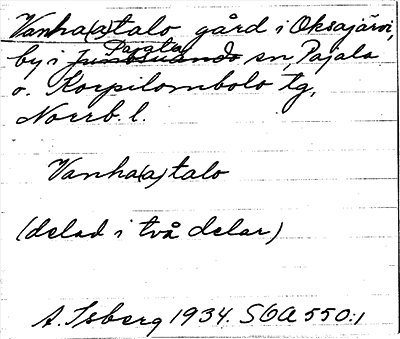 Vanha(a)talo gård i Oksajärvi,
by i Junosuando Pajala sn, Pajala
o. Korpilombolo tg,
Norrb. l.
Vanha(a)talo
(delad i två delar)
A. Isberg 1934. SOA 550:1